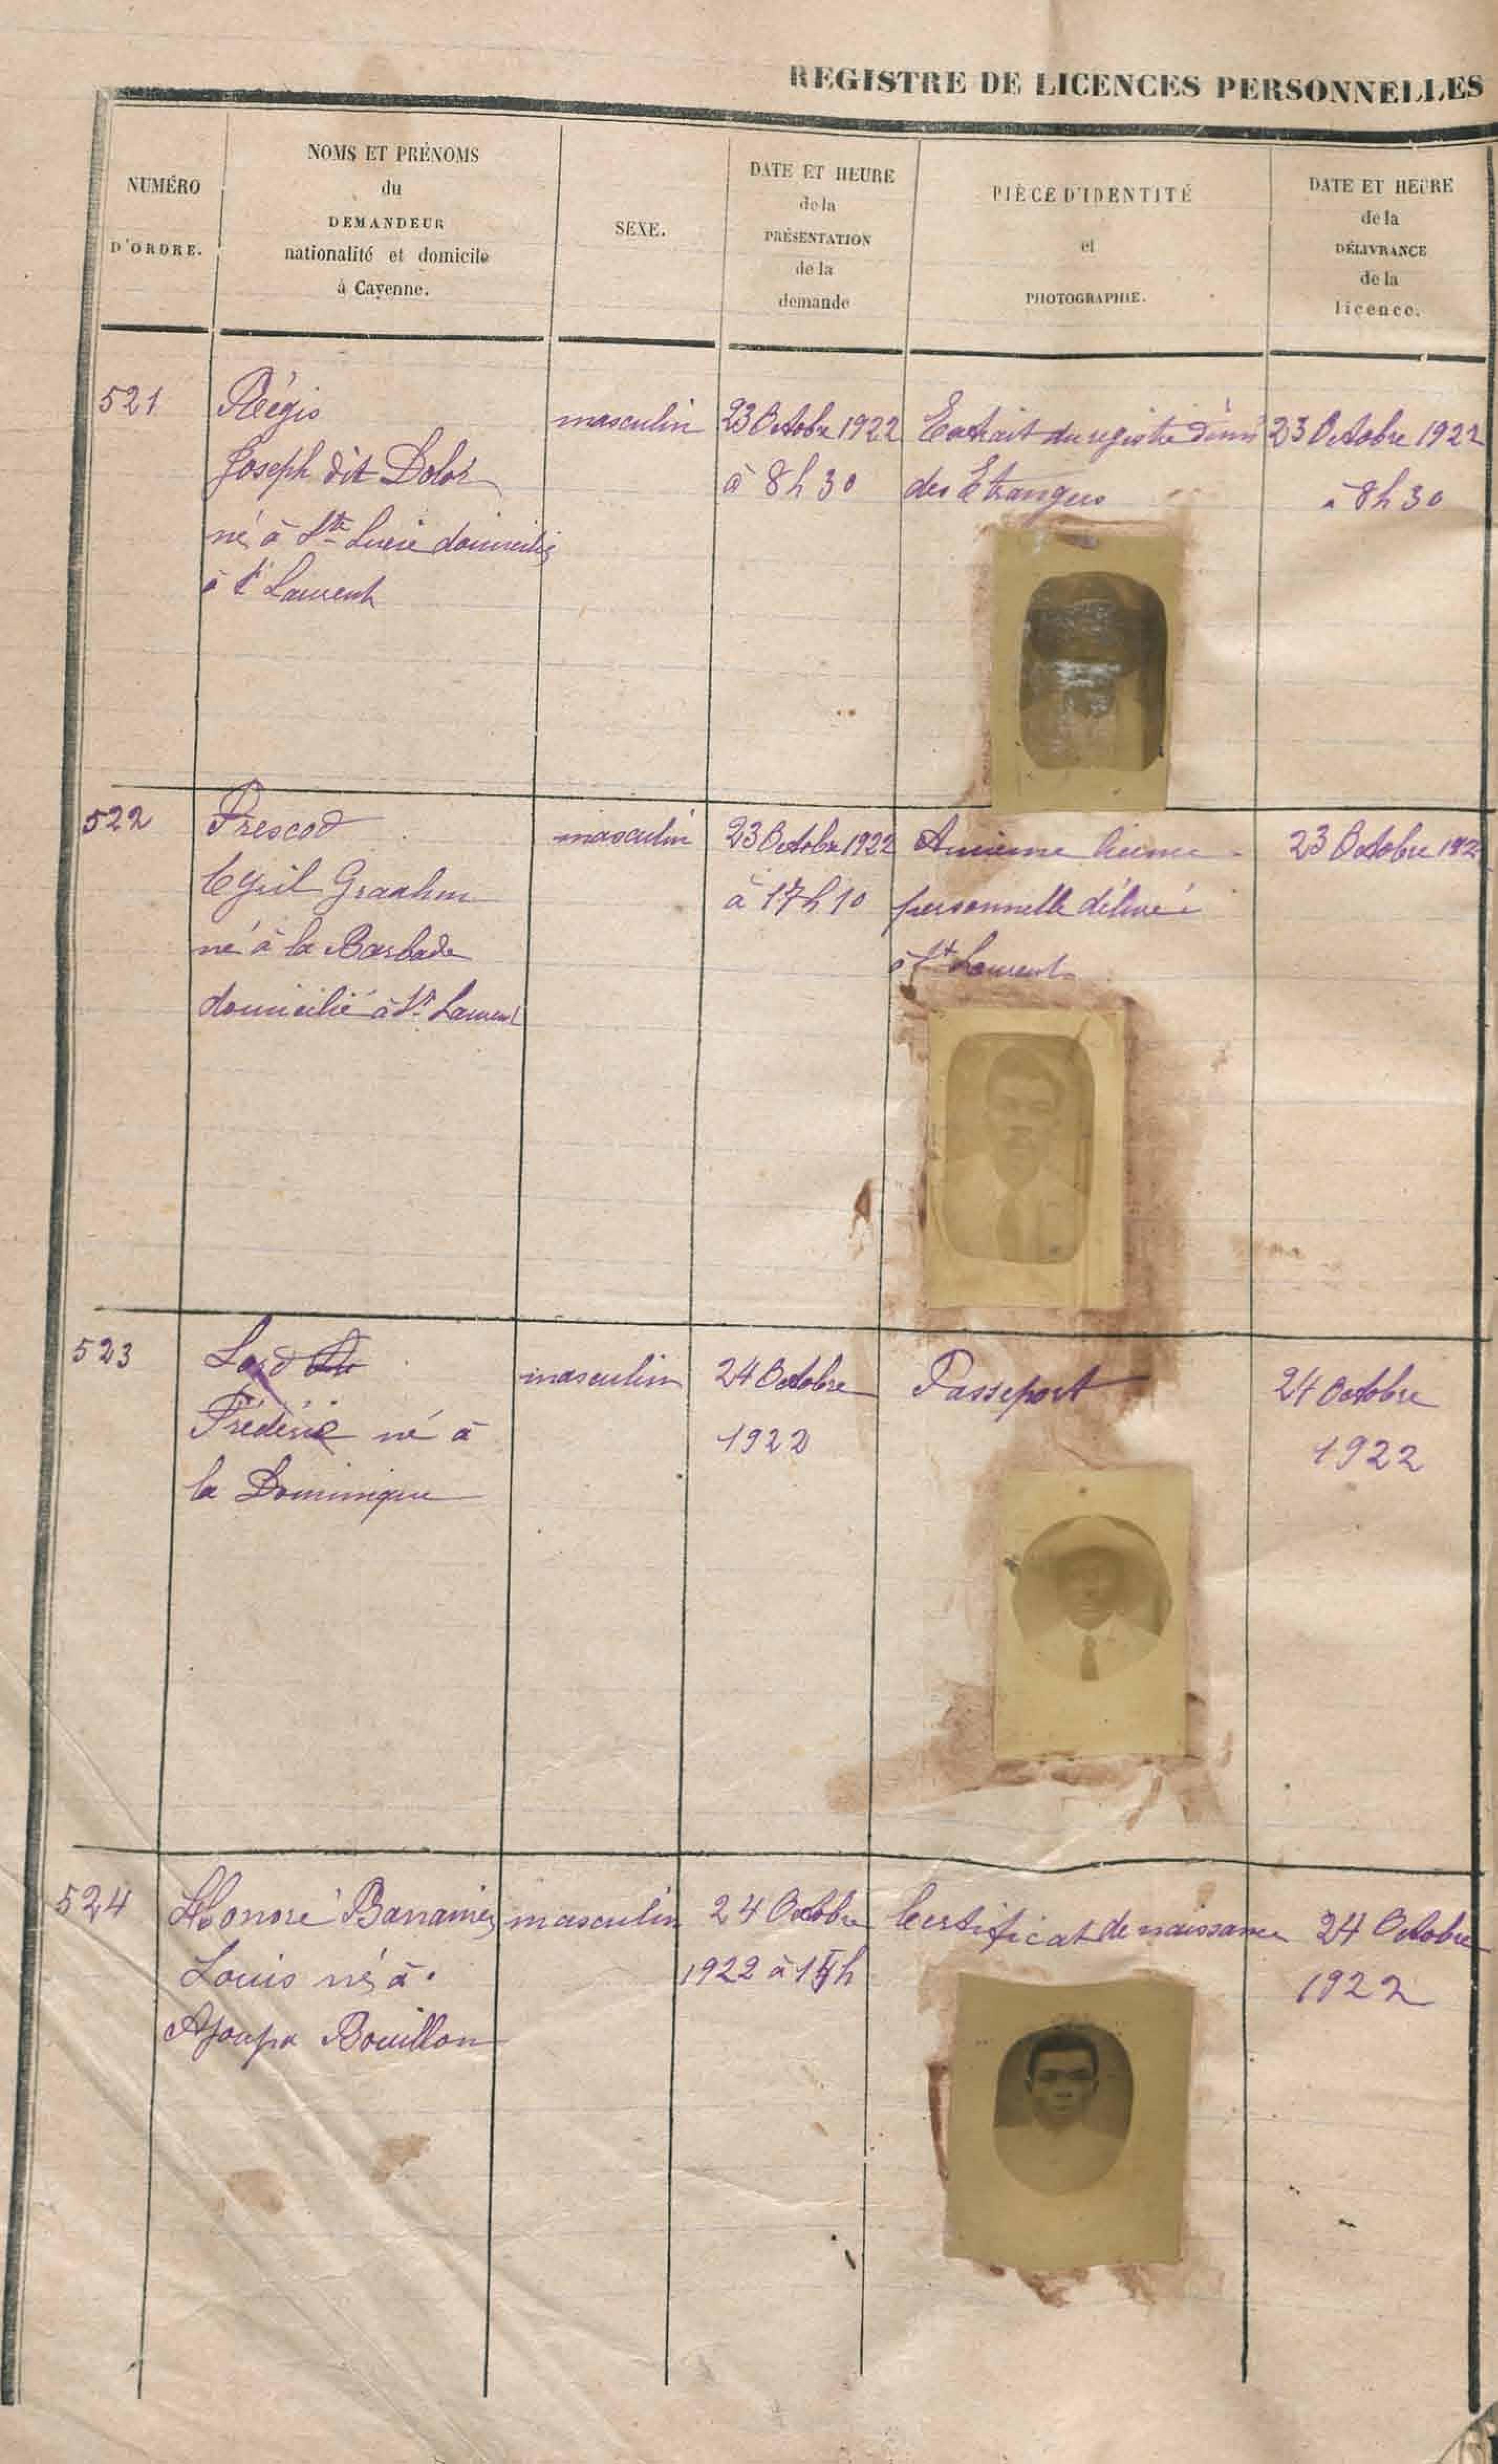 REGISTRE DE LICENCES PERSONNELLES
NUMÉRO
D'ORDRE.
NOMS ET PRÉNOMS
du
DEMANDEUR
nationalité et domicile
à Cayenne.
SEXE.
DATE ET HEURE
de la
PRÉSENTATION
de la
demande
PIÈCE D'IDENTITÉ
et
PHOTOGRAPHIE.
DATE ET HEURE
de la
DÉLIVRANCE
de la
licence.
521
Régis
Joseph dit Dolor
né à Ste Lucie domicilié
à St Laurent
masculin
23 Octobre 1922
à 8h30
Extrait du registre
des Etrangers
23 Octobre 1922
à 8h30
522
Prescod
Cyril Graahm
né à la Barbade
domicilié à St Laurent
masculin
23 Octobre 1922
à 17h10
Ancienne licence
personnelle délivrée
à St Laurent
23 Octobre 192
523
Lord
Frédéric né à
la Dominique
masculin
24 Octobre
1922
Passeport
24 Octobre
1922
524
Honoré
Louis né à
Ajoupa Bouillon
masculin
24 Octobre
1922 à 15h
Certificat de naissance
24 Octobre
1922